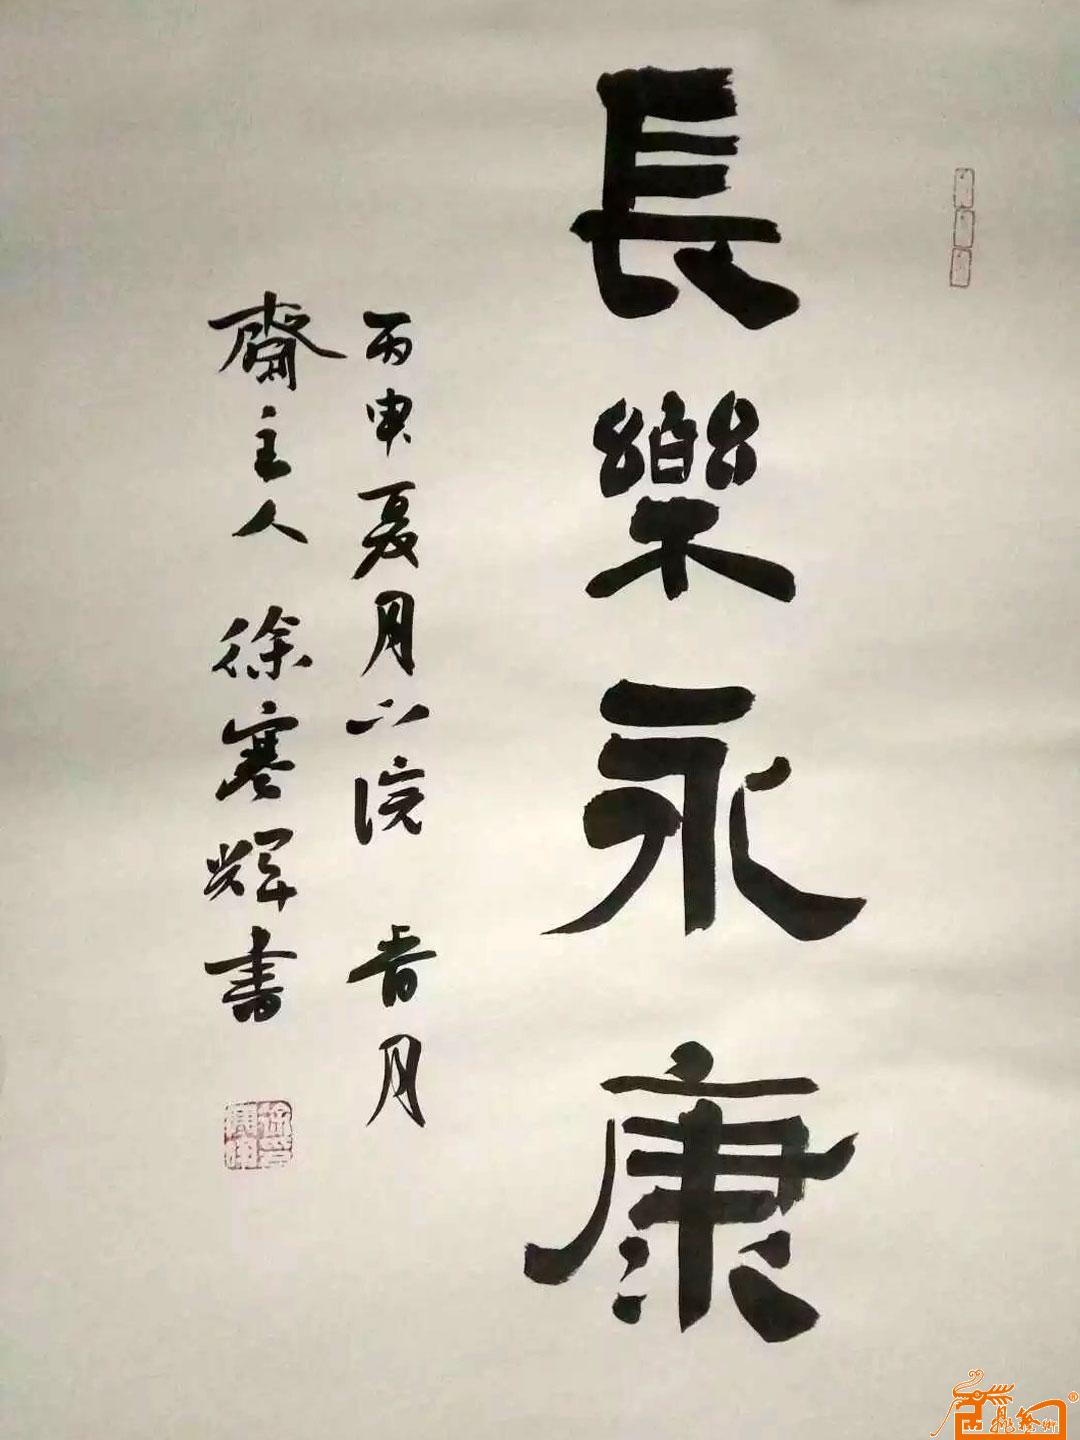 長樂永康
丙申夏月於皖 春月
齋主人 徐寒輝書